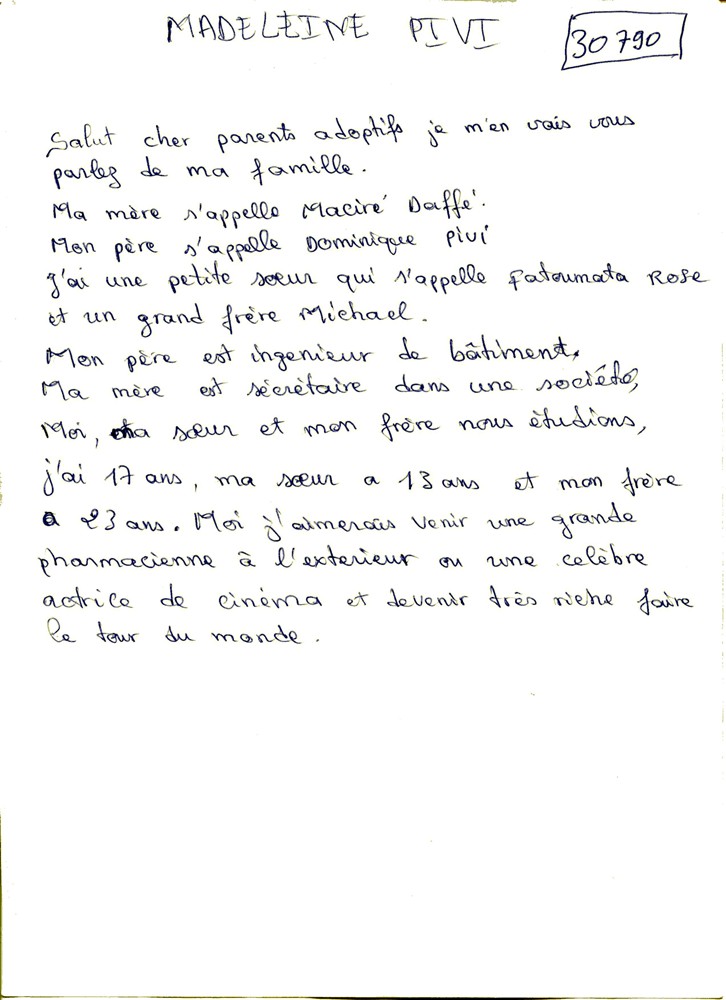 MADELEINE PIVI 30 790
Salut cher parents adoptifs je m'en vais vous
parlez de ma famille.
Ma mère s'appelle Maciré Daffé.
Mon père s'appelle Dominique Pivi
J'ai une petite sœur qui s'appelle Fatoumata Rose
et un grand frère Michael.
Mon père est ingenieur de bâtiment,
Ma mère est sécrètaire dans une société,
Moi, ma sœur et mon frère nous ètudions,
j'ai 17 ans, ma sœur a 13 ans et mon frère
a 23 ans. Moi j'aimerais venir une grande
pharmacienne à l'exterieur ou une celèbre
actrice de cinéma et devenir très riche faire
le tour du monde.